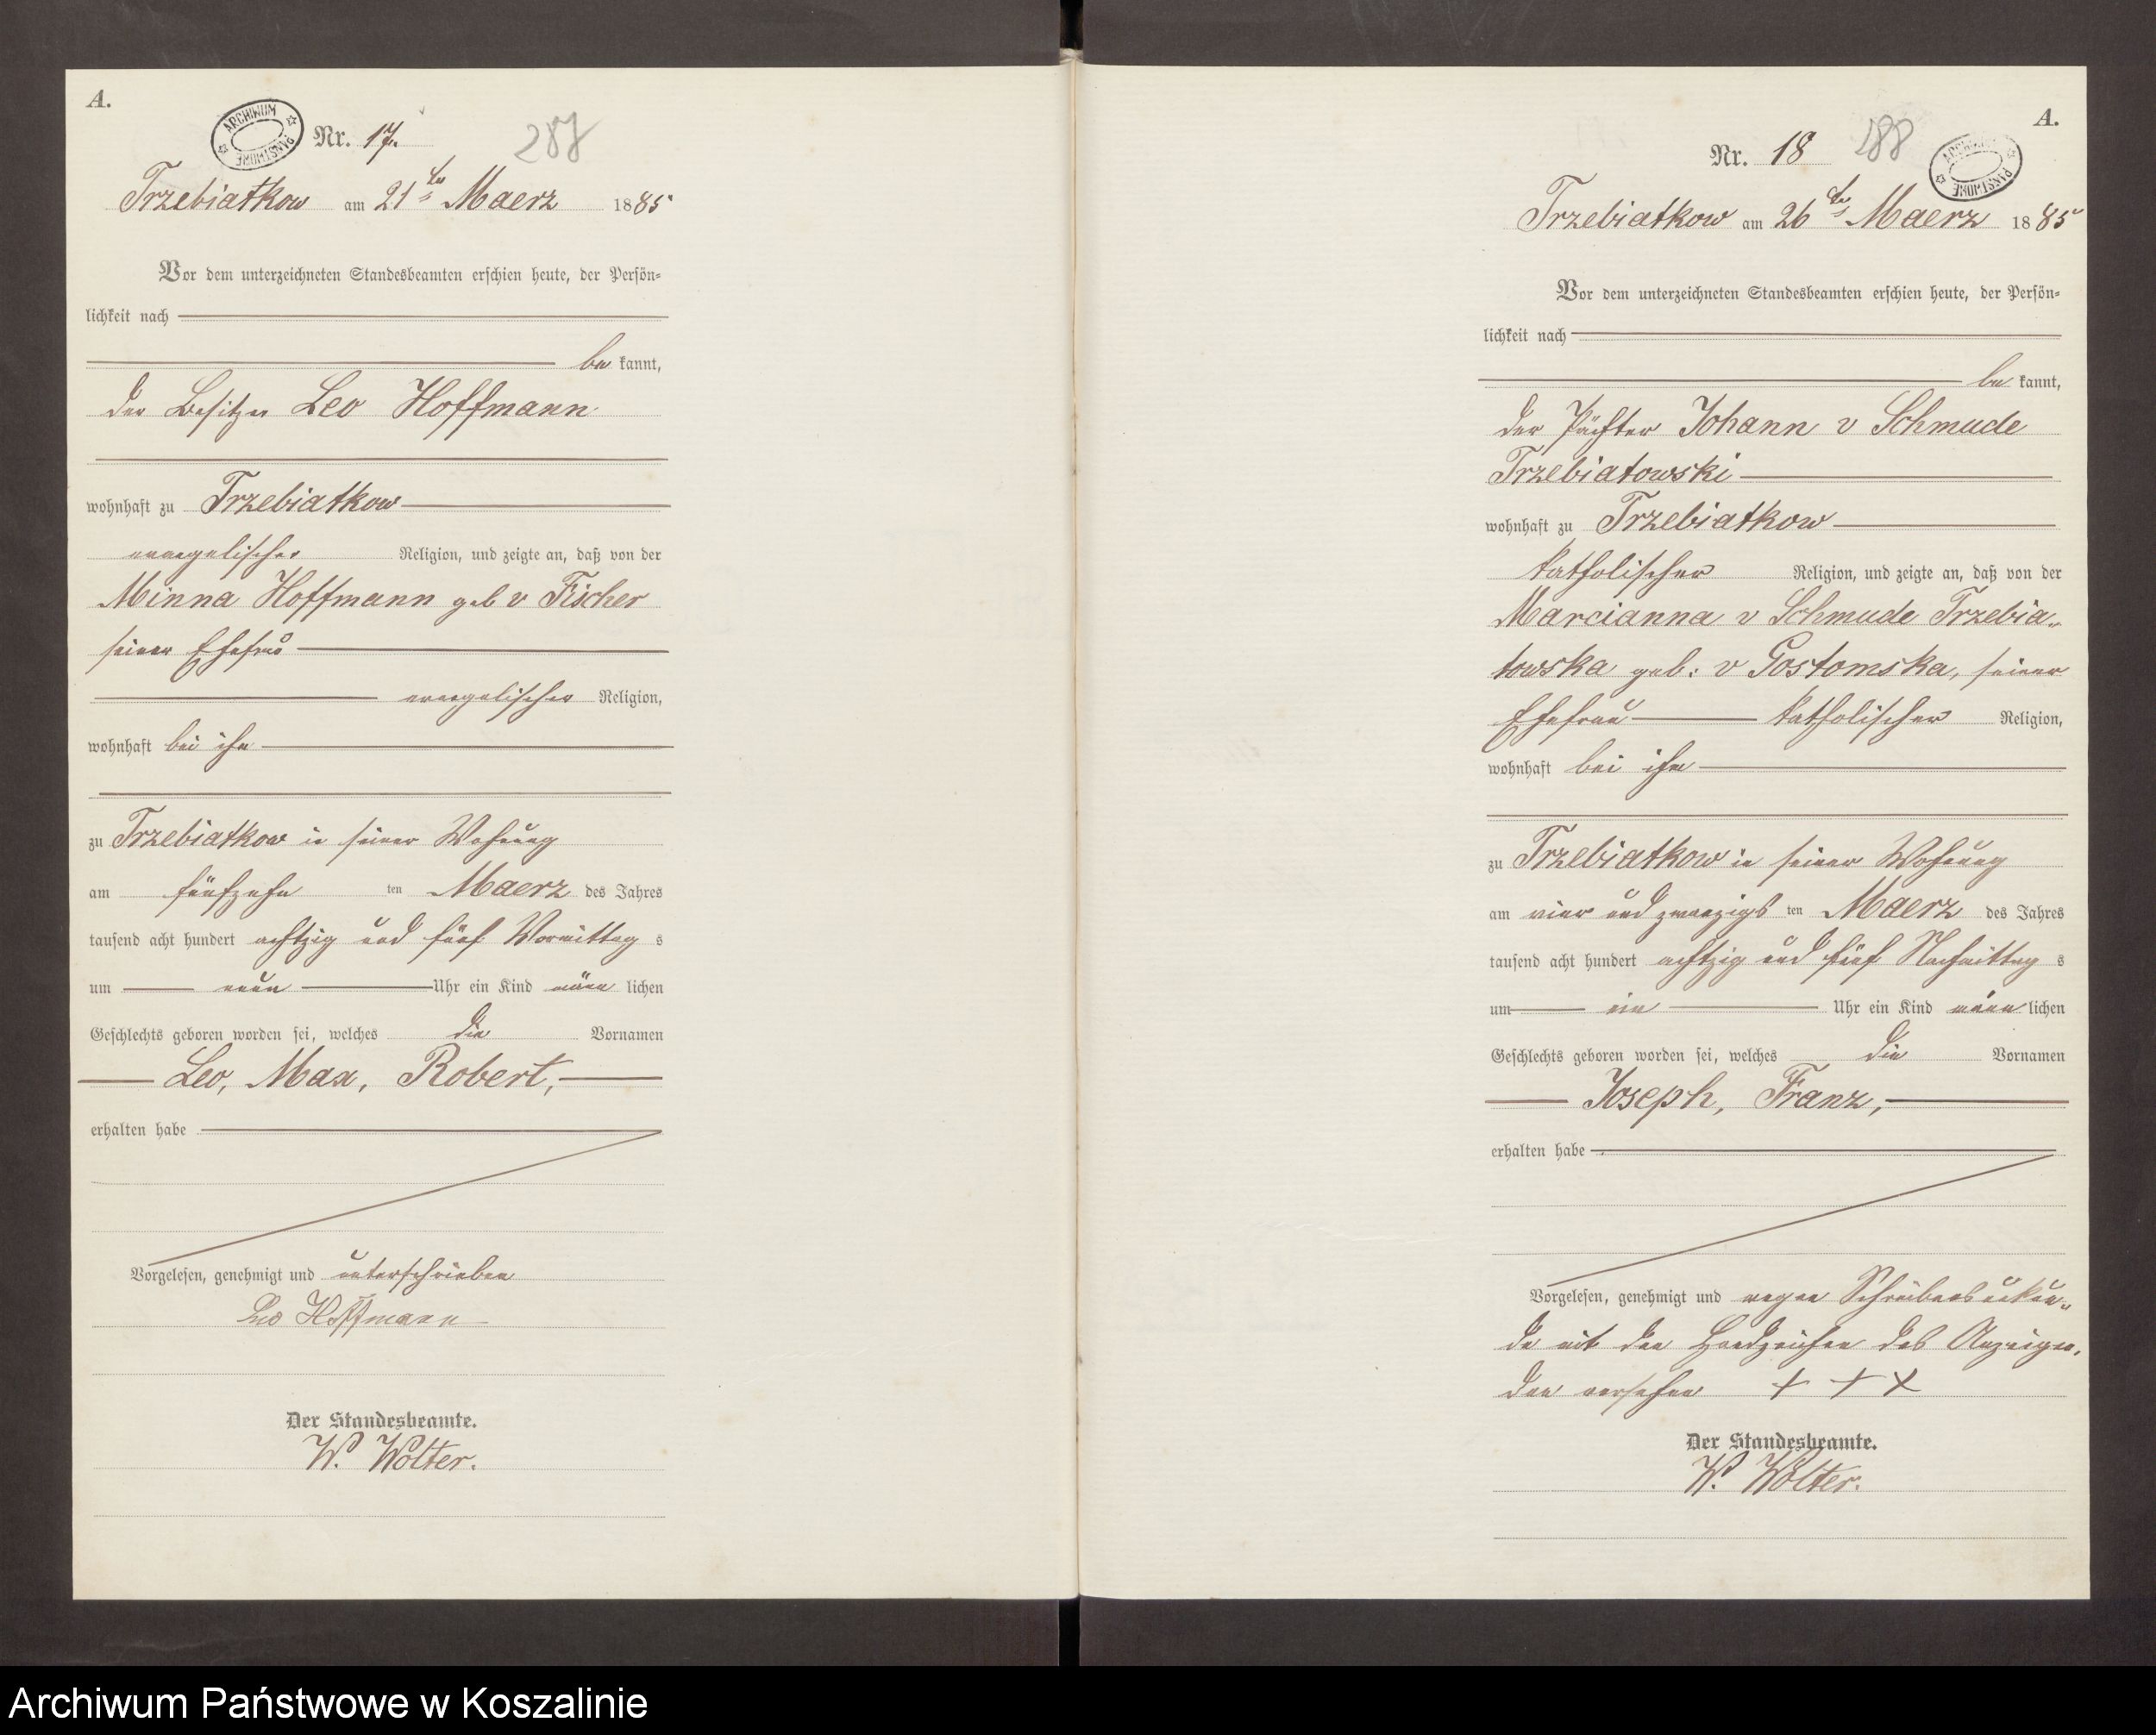 A.
ARCHIWUM PAŃSTWOWE
Nr. 17.
287
Trzebiatkow am 21ten Maerz 1885
Vor dem unterzeichneten Standesbeamten erschien heute, der Persön-
lichkeit nach
be kannt,
der Besitzer Leo Hoffmann
wohnhaft zu Trzebiatkow
evangelischer Religion, und zeigte an, daß von der
Minna Hoffmann geb v Fischer
seiner Ehefrau
evangelischer Religion,
wohnhaft bei ihm
zu Trzebiatkow in seiner Wohnung
am fünfzehn ten Maerz des Jahres
tausend acht hundert achtzig und fünf Vormittag s
um neun Uhr ein Kind männ lichen
Geschlechts geboren worden sei, welches die Vornamen
Leo, Max, Robert,
erhalten habe
Vorgelesen, genehmigt und unterschrieben
Leo Hoffmann
Der Standesbeamte.
W. Wolter.
A.
Nr. 18
188
ARCHIWUM PAŃSTWOWE
Trzebiatkow am 26ten Maerz 1885
Vor dem unterzeichneten Standesbeamten erschien heute, der Persön-
lichkeit nach
be kannt,
der Pächter Johann v Schmude
Trzebiatowski
wohnhaft zu Trzebiatkow
katholischer Religion, und zeigte an, daß von der
Marcianna v Schmude Trzebia-
towska geb: v Gostomska, seiner
Ehefrau katholischer Religion,
wohnhaft bei ihm
zu Trzebiatkow in seiner Wohnung
am vier und zwanzigs ten Maerz des Jahres
tausend acht hundert achtzig und fünf Nachmittag s
um ein Uhr ein Kind männ lichen
Geschlechts geboren worden sei, welches die Vornamen
Joseph, Franz,
erhalten habe
Vorgelesen, genehmigt und wegen Schreibensunkun-
de mit den Handzeichen des Anzeigen-
den versehen + + +
Der Standesbeamte.
W. Wolter.
Archiwum Państwowe w Koszalinie